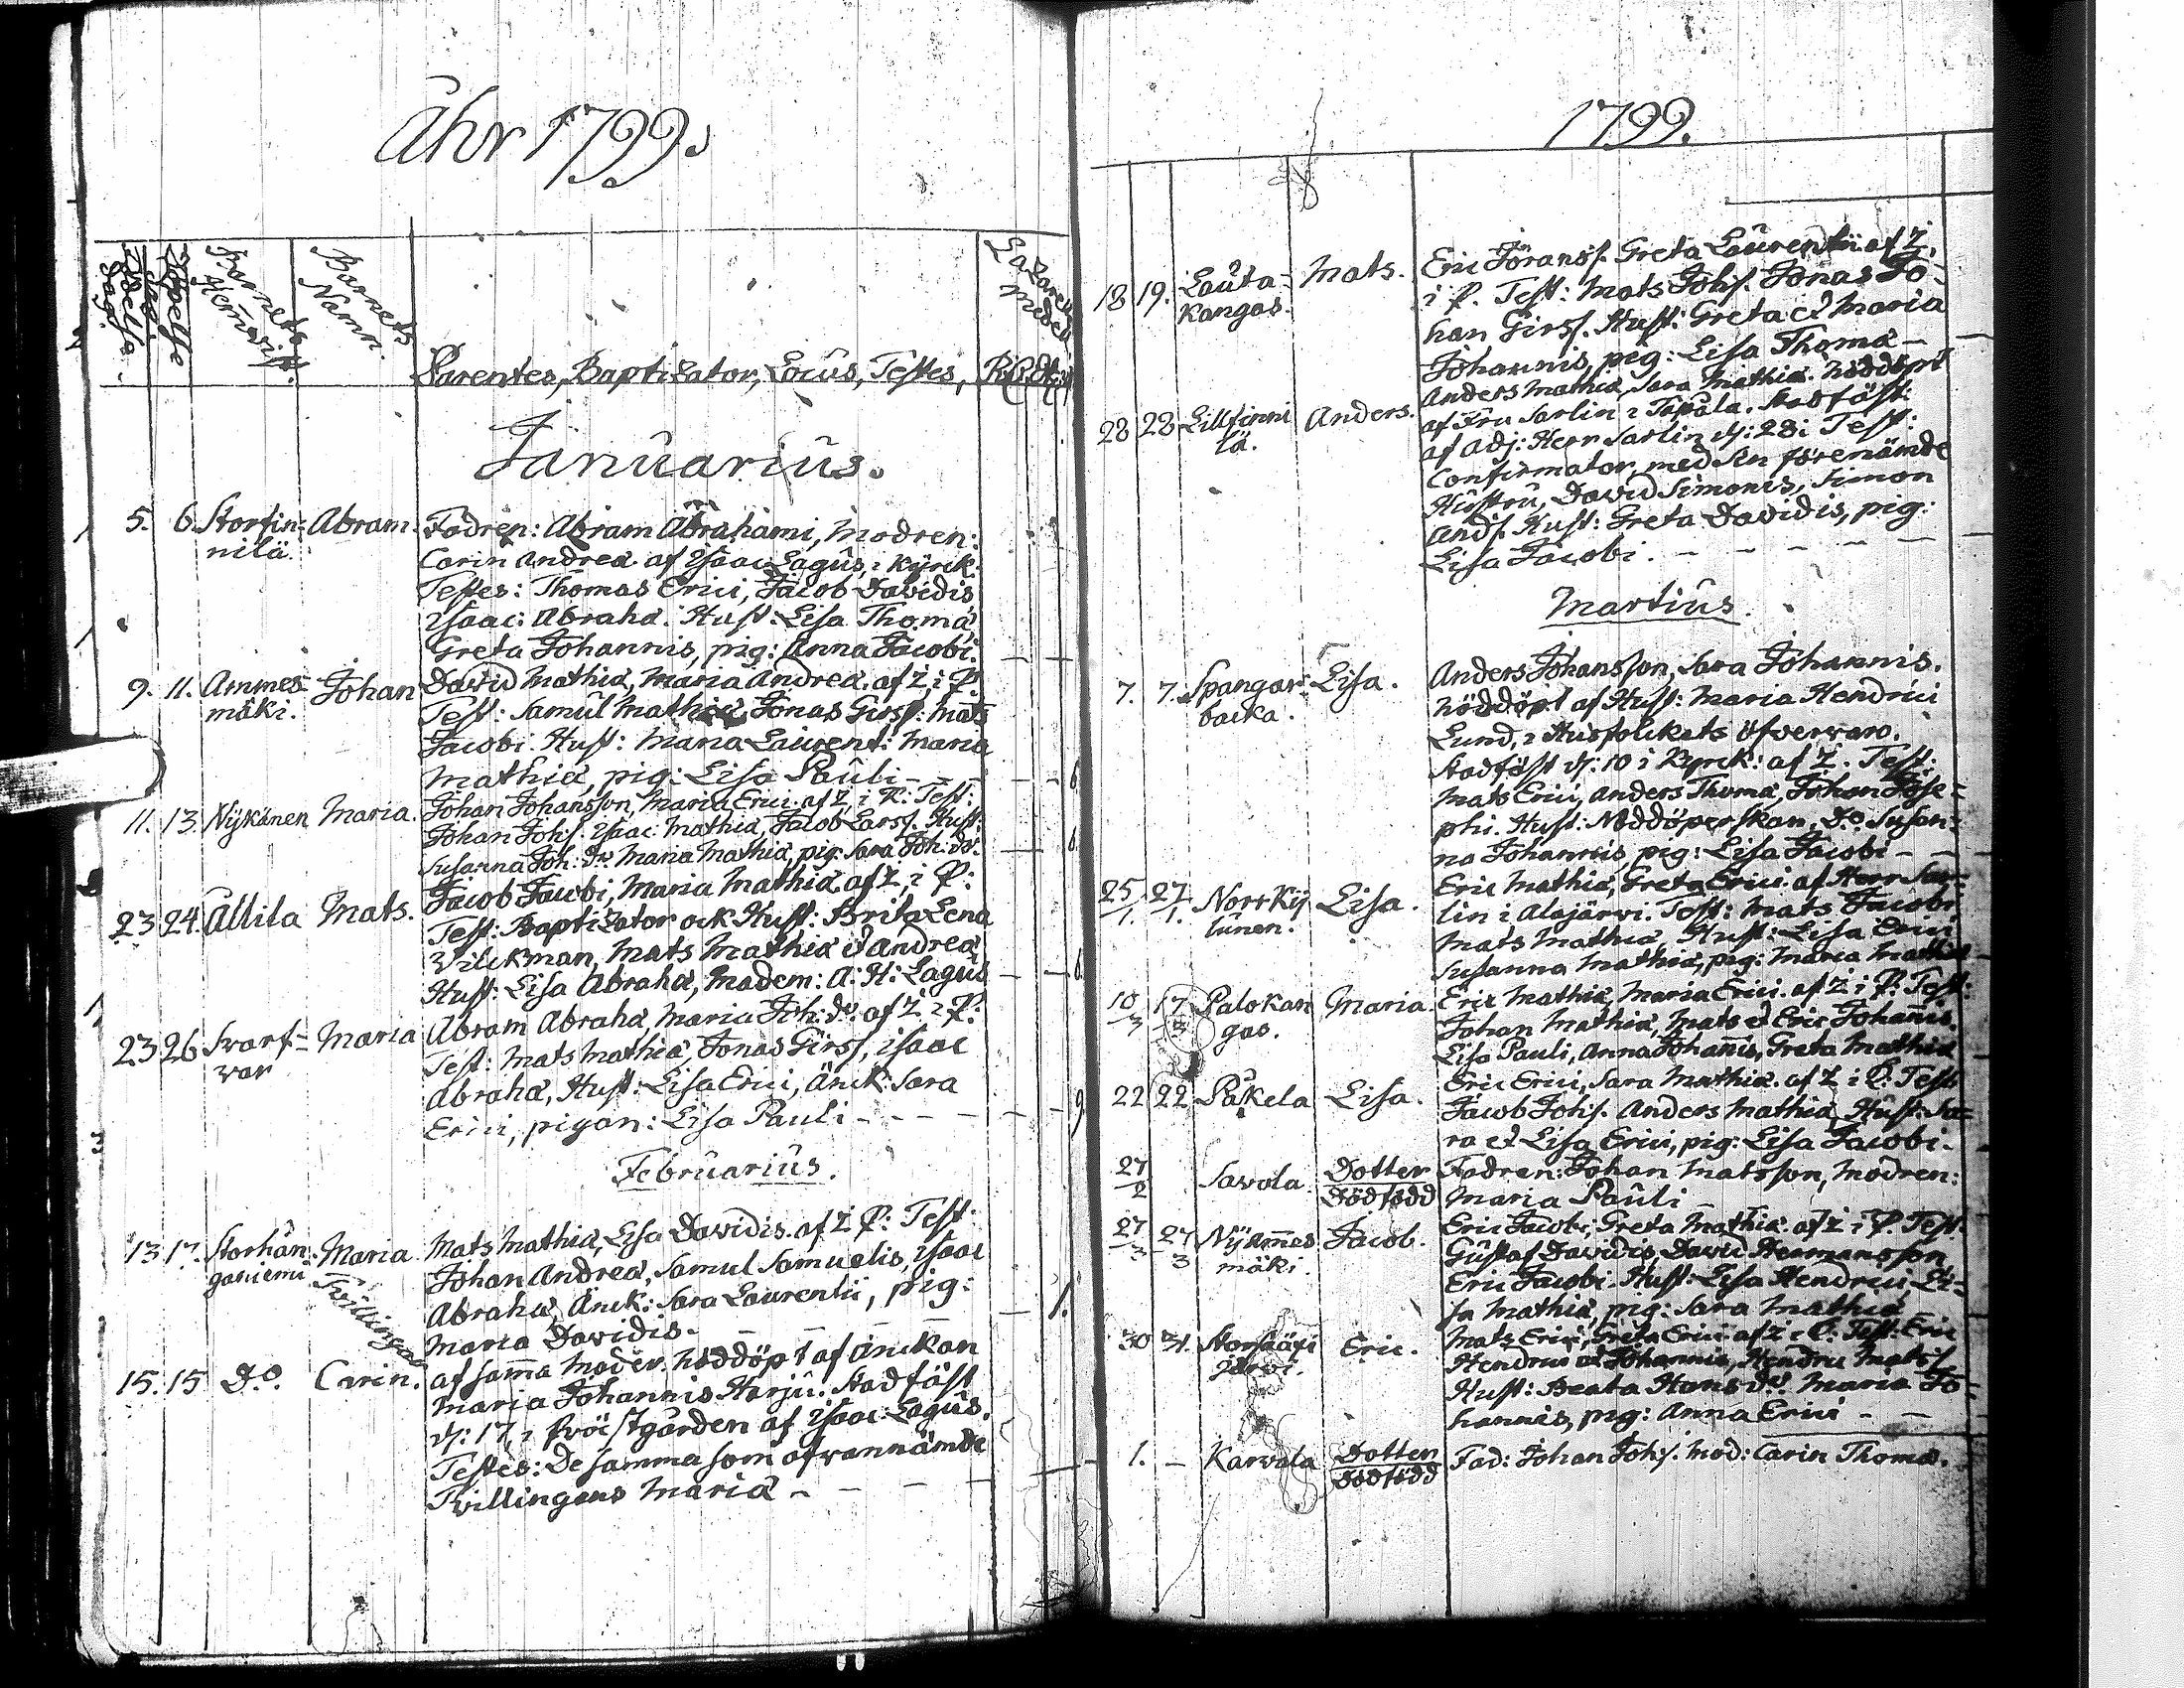 Åhr 1799.
Födelse Dag.
Döpelse Dag.
Barnets Hemvist.
Barnets Namn.
Parentes, Baptizator, Locus, Testes,
Lazaretts Medel
Januarius.
5. 6. Storfin= Abram. Fadren: Abram Abrahami, Modren:
nilä. Carin Andreæ. af Isaac Lagus, i Kyrck.
Testes: Thomas Erici, Jacob Davidis
Isaac Abrahā. Hust: Lisa Thomā
Greta Johannis, pig: Anna Jacobi.
9. 11. Ammes- Johan David Mathiæ, Maria Andreæ. af Z. i P.
mäki. Test: Samul Mathiæ, Jonas Girsf. Mats
Jacobi. Hust: Maria Laurenti Maria
Mathiæ, pig: Lisa Pauli - - - 6
11. 13. Nÿkänen Maria. Johan Johansson, Maria Erici. af Z, i P: Test:
Johan Johs. Isaac Mathiæ, Jacob Larss. Hust:
Susanna Joh: dr. Maria Mathiæ, pig: Sara Joh: dr. 6.
23 24. Allila Mats. Jacob Jacobi, Maria Mathiæ. af Z, i P:
Test: Baptizator ock Hust: Brita Lena
Wilckman, Mats Mathiæ et Andreæ
Hust: Lisa Abrahā, Madem: A: H: Lagus - 6.
23 26 Svarf= Maria Abram Abrahā, Maria Joh: dr. af Z i P:
var Test: Mats Mathiæ, Jonas Girss, Isaac
Abrahā, Hust: Lisa Erici, Änck: Sara
Erici, pigan: Lisa Pauli - - - - 9
Februarius.
13. 17. Storhän- Maria Mats Mathiæ, Lisa Davidis. af Z P: Test:
ganiemi Johan Andreæ, Samul Samuelis, Isaac
Tvillingar Abrahā, Änck: Sara Laurentii, pig:
Maria Davidis. - - - - 1.
15. 15 Do. Carin. af samma Moder. Nöddöpt af Änckan
Maria Johannis Harju. Stadfäst
d: 17, i Präistgården af Isaac Lagus.
Testes: De samma som ofvannämde
Tvillingens Maria - - - -
1799.
18 19. Lauta- Mats. Eric Joranss. Greta Laurentii. af Z,
kangas. i P. Test: Mats Johs. Jonas Jo-
han Girss. Hust: Greta et Maria
Johannis, pig: Lisa Thomā -
28 28 Lillfinni Anders. Anders Mathiæ, Sara Mathiæ. Nöddöpt
lä. af Fru Sarlin i Tapala. Stadfäst
af Adj: Herr Sarlin d: 28 i Test:
Confirmator, med sin förenämde
Hustru, David Simonis, Simon
Ands. Hust: Greta Davidis, pig:
Lisa Jacobi. - - - - -
Martius.
7. 7. Spangar- Lisa. Anders Johansson, Sara Johannis.
backa. nöddöpt af Hust: Maria Hendrici
Lund, i Husfolckets öfvervaro.
Stadfäst d: 10 i Kyrck: af Z. Test:
Mats Erici, Anders Thomā, Johan Jose=
phi. Hust: Nöddöperskan, Do. Susan=
na Johannis, pig: Lisa Jacobi - -
25/1. 27/1. Norrkÿ Lisa. Eric Mathiæ, Greta Erici. af Herr Sar-
lunen. lin i Alajärvi. Test: Mats Jacobi
Mats Mathiæ, Hust: Lisa Erici
Susanna Mathiæ, pig: Maria Mathiæ
10/3 17/3 Palokan Maria. Eric Mathiæ, Maria Erici. af Z i P: Test:
gas. Johan Mathiæ, Mats et Eric Johannis.
Lisa Pauli, Anna Johannis, Greta Mathiæ
22 22 Påkela Lisa. Eric Erici, Sara Mathiæ. af Z i P: Test
Jacob Johs. Anders Mathiæ, Hust: Sa=
ra et Lisa Erici, pig: Lisa Jacobi.
27/2 Savola. Dotter Fadren: Johan Matsson, Modren:
Dödfödd Maria Pauli -
27/3 27/3 Nÿ ammes Jacob. Eric Jacobi, Greta Mathiæ. af Z i P. Test.
mäki. Gustaf Davidis, David Hermansson
Eric Jacobi. Hust: Lisa Hendrici, Li-
sa Mathiæ, pig: Sara Mathiæ
30 31. Eric. Mats Erici, Greta Erici. af Z i P. Test: Eric
järvi. Hendrici et Johannis, Hendric Matss.
Hust: Beata Hans dr. Maria Jo-
hannis, pig: Anna Erici - -
1. - Karvala Dotter Fad: Johan Johs. Mod: Carin Thomæ.
Dödfödd